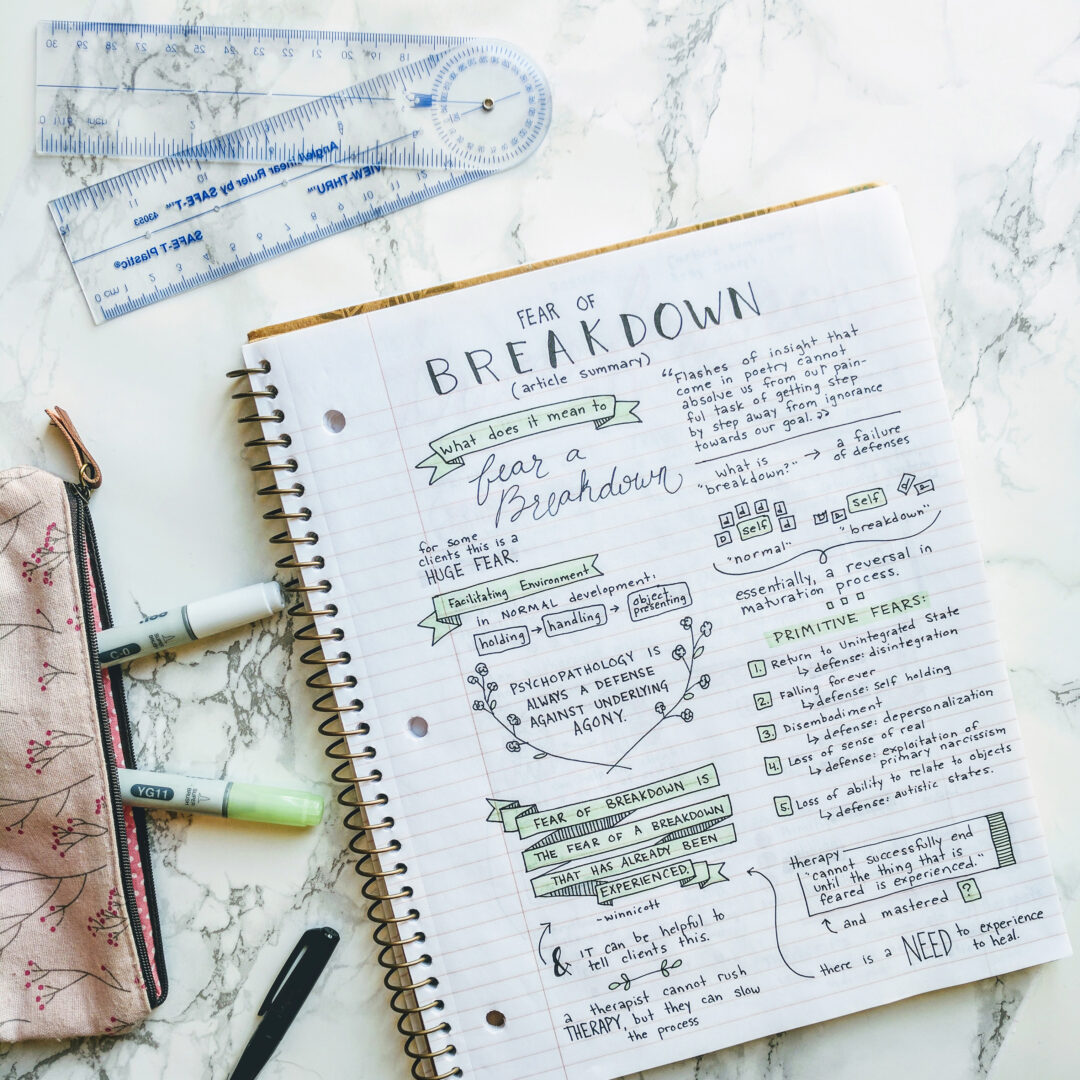 30 29 28 27 26 25 24 23 22 21 20 19 18
0 1/16 inch
Angle/Linear Ruler by SAFE-T™
VIEW-THRU™
43053
SAFE-T Plastic®
0 cm 1 2 3 4 5 6 7 8 9 10 11 12
FEAR OF
BREAKDOWN
(article summary)
What does it mean to
fear a
Breakdown
for some
clients this is a
HUGE FEAR.
Facilitating Environment
in NORMAL development:
holding → handling → object
presenting
PSYCHOPATHOLOGY IS
ALWAYS A DEFENSE
AGAINST UNDERLYING
AGONY.
FEAR OF BREAKDOWN IS
THE FEAR OF A BREAKDOWN
THAT HAS ALREADY BEEN
EXPERIENCED.
-winnicott
& IT can be helpful to
tell clients this.
a therapist cannot rush
THERAPY, but they can slow
the process
“Flashes of insight that
come in poetry cannot
absolve us from our pain-
ful task of getting step
by step away from ignorance
towards our goal.”
what is
"breakdown?" → a failure
of defenses
d d d d
D self d
"normal"
d D self d d
"breakdown"
essentially, a reversal in
maturation process.
PRIMITIVE FEARS:
1. Return to Unintegrated State
↳ defense: disintegration
2. Falling forever
↳ defense: self holding
3. Disembodiment
↳ defense: depersonalization
4. Loss of sense of real
↳ defense: exploitation of
primary narcissism
5. Loss of ability to relate to objects
↳ defense: autistic states.
therapy
"cannot successfully end
until the thing that is
feared is experienced."
and mastered ?
there is a NEED to experience
to heal.
C-0
YG11
SUPER
BRUSH